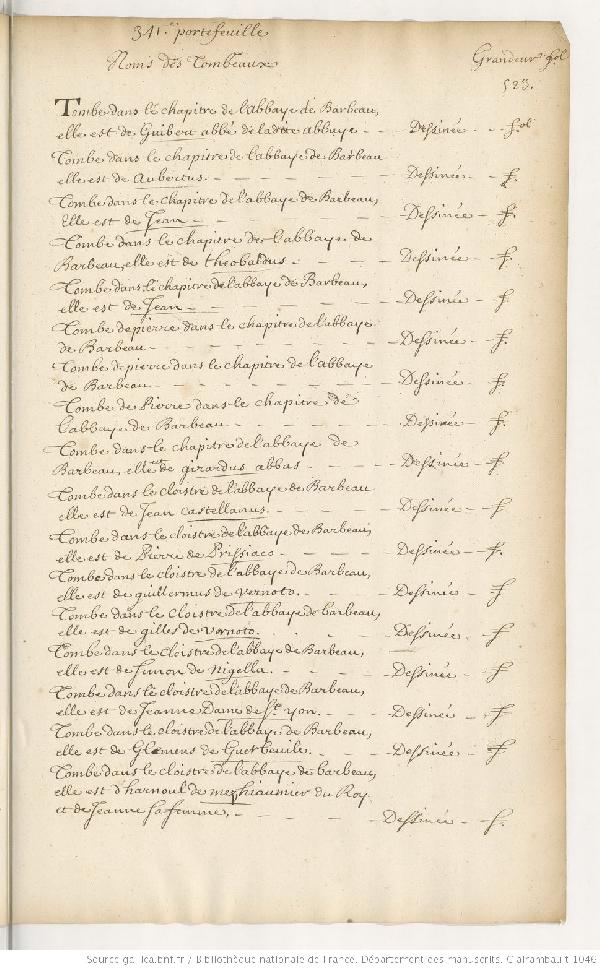 341.e portefeuille
Noms des Tombeaux Grandeur fol
523.
Tombe dans le chapitre de l'abbaye de Barbeau,
elle est de Guibert abbé de ladite abbaye - - Dessinée - - fol
Tombe dans le chapitre de l'abbaye de Barbeau
elle est de Aubertus. - - - - - - Dessinée - f.
Tombe dans le chapitre de l'abbaye de Barbeau,
elle est de Jean - - - - - Dessinée - f.
Tombe dans le chapitre de l'abbaye de
Barbeau, elle est de theobaldus - - - - Dessinée - f.
Tombe dans le chapitre de l'abbaye de Barbeau,
elle est de Jean - - - - - Dessinée - f.
Tombe de pierre dans le chapitre de l'abbaye
de Barbeau - - - - - - - Dessinée - f.
Tombe de pierre dans le chapitre de l'abbaye
de Barbeau - - - - - - - Dessinée - f.
Tombe de Pierre dans le chapitre de
l'abbaye de Barbeau - - - - - Dessinée - f.
Tombe dans le chapitre de l'abbaye de
Barbeau, elle est de girardus abbas - - - - Dessinée - f.
Tombe dans le cloistre de l'abbaye de Barbeau
elle est de Jean castellanus. - - - - Dessinée - f
Tombe dans le cloistre de l'abbaye de Barbeau,
elle est de Pierre de Prissiaco - - - - Dessinée - f.
Tombe dans le cloistre de l'abbaye de Barbeau,
elle est de guillermus de vernoto. - - - Dessinée - f
Tombe dans le cloistre de l'abbaye de barbeau,
elle est de gilles de vernoto. Dessinée. - f
Tombe dans le cloistre de l'abbaye de Barbeau,
elle est de simon de nigella. - - - - Dessinée - f
Tombe dans le cloistre de l'abbaye de Barbeau,
elle est de Jeanne Dame de St yon. - - - Dessinée - f
Tombe dans le cloistre de l'abbaye de Barbeau,
elle est de Glemens de Guerbeuile. - - - Dessinée - f
Tombe dans le cloistre de l'abbaye de barbeau,
elle est d'harnoul de du Roy
et de Jeanne sa femme, - - - - - Dessinée - f.
Source gallica.bnf.fr / Bibliothèque nationale de France. Département des manuscrits. Clairambault 1046